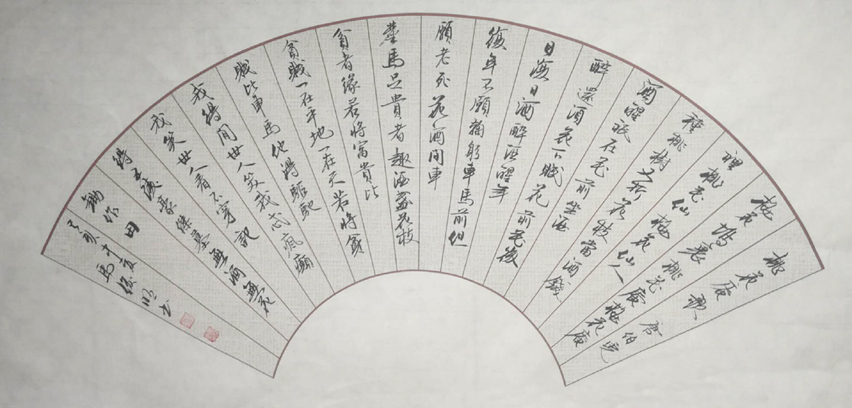 桃花庵歌 唐伯虎
桃花塢裏桃花庵桃花庵
裡桃花仙桃花仙人
種桃樹又折花枝當酒錢
酒醒祇在花前坐酒
醉還酒花下眠花前花後
日復日酒醉酒醒年
復年不願鞠躬車馬前但
願老死花酒間車
塵馬足貴者趣酒盞花枝
貧者緣若將富貴比
貧賤一在平地一在天若將貧
賤比車馬他得驅馳
我得閒世人笑我忒瘋癲
我笑世人看不穿記
得五陵豪傑墓無酒無花
鋤作田
己亥中夏
馬俊明书